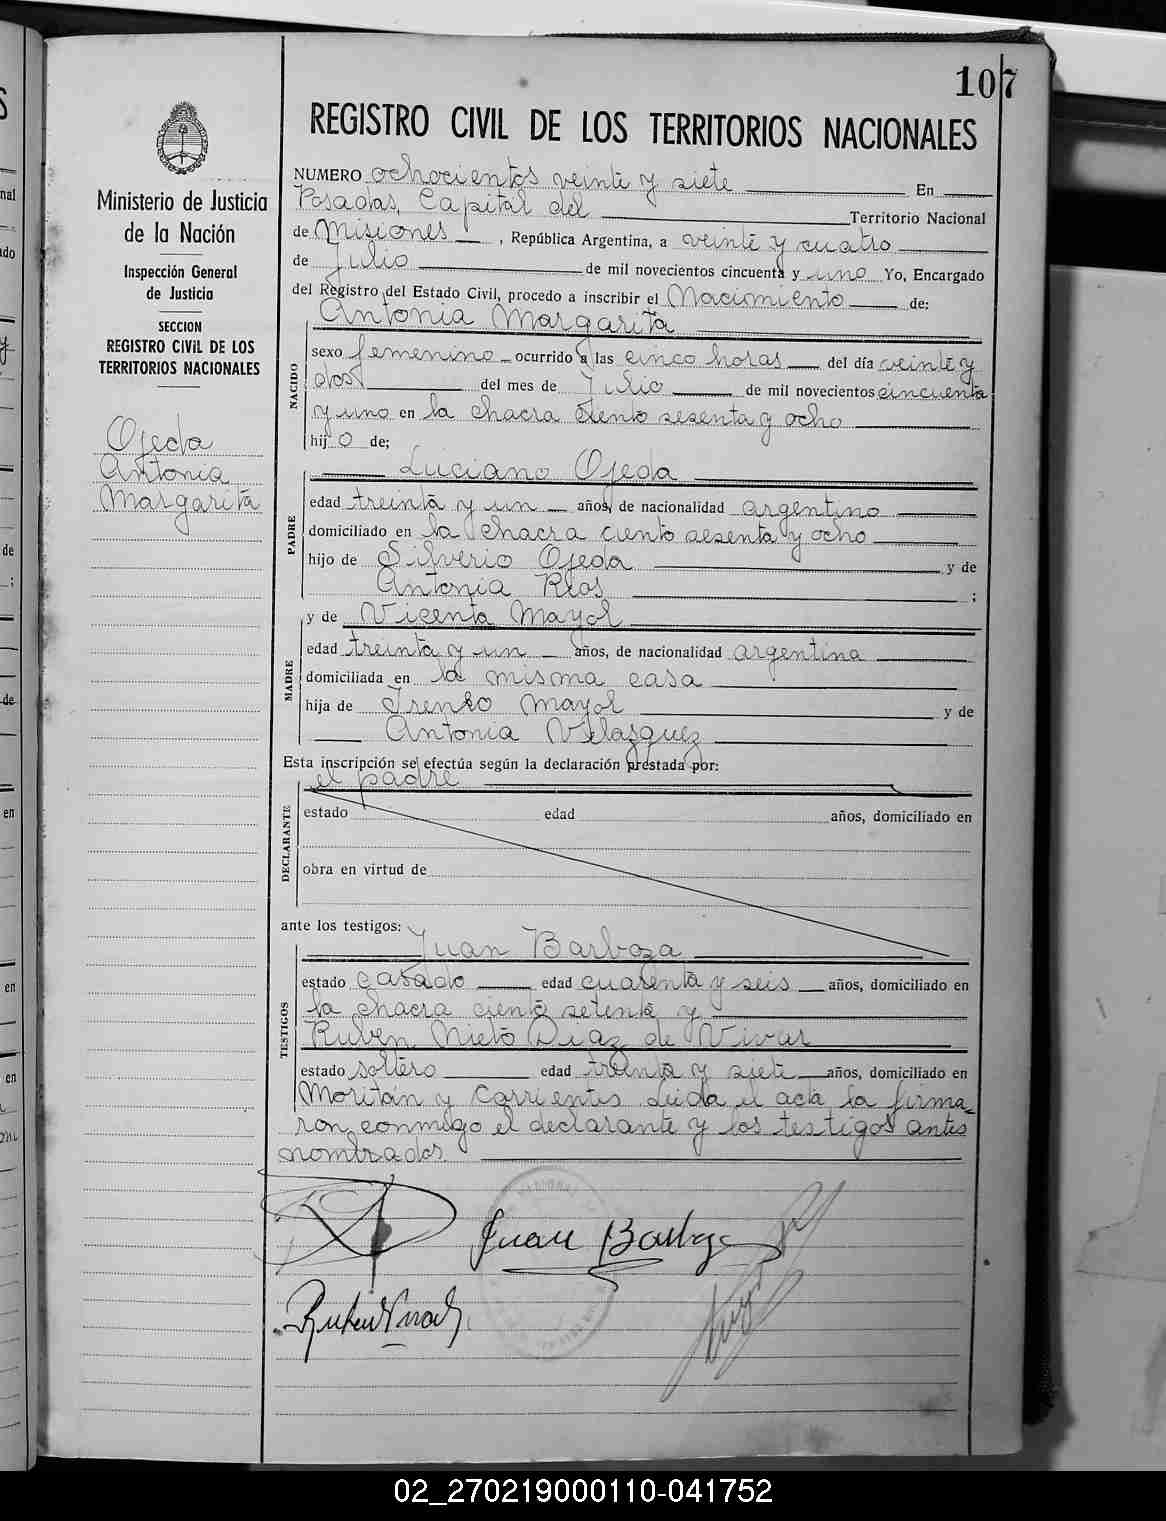 107
REGISTRO CIVIL DE LOS TERRITORIOS NACIONALES
Ministerio de Justicia
de la Nación
Inspección General
de Justicia
SECCION
REGISTRO CIVIL DE LOS
TERRITORIOS NACIONALES
Ojeda
Antonia
Margarita
NUMERO ochocientos veinte y siete En
Posadas, Capital del Territorio Nacional
de Misiones, República Argentina, a veinte y cuatro
de Julio de mil novecientos cincuenta y uno Yo, Encargado
del Registro del Estado Civil, procedo a inscribir el Nacimiento de:
Antonia Margarita
NACIDO
sexo femenino ocurrido a las cinco horas del día veinte y
dos del mes de Julio de mil novecientos cincuenta
y uno en la chacra ciento sesenta y ocho
hijo de;
Luciano Ojeda
PADRE
edad treinta y un años, de nacionalidad argentino
domiciliado en la chacra ciento sesenta y ocho
hijo de Silverio Ojeda y de
Antonia Rios ;
y de Vicenta Mayol
MADRE
edad treinta y un años, de nacionalidad argentina
domiciliada en la misma casa
hija de Mayol y de
Antonia Velazquez
Esta inscripción se efectúa según la declaración prestada por:
el padre
DECLARANTE
estado edad años, domiciliado en
obra en virtud de
ante los testigos:
Juan Barboza
TESTIGOS
estado casado edad cuarenta y seis años, domiciliado en
la chacra ciento setenta y
Ruben Nieto Diaz de Vivar
estado soltero edad treinta y siete años, domiciliado en
Moritán y Corrientes. Leida el acta la firma-
ron conmigo el declarante y los testigos antes
nombrados.
Juan Barboza
02_270219000110-041752